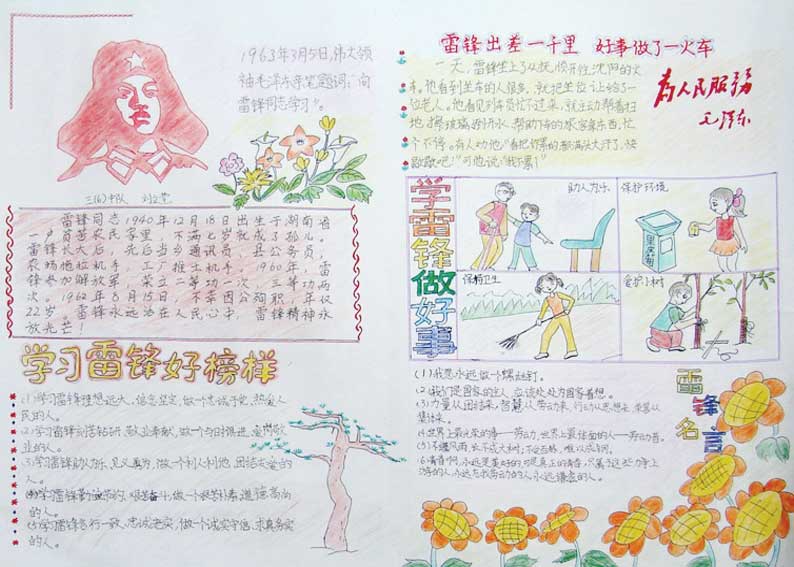 1963年3月5日,伟大领
袖毛泽东亲笔题词:"向
雷锋同志学习"。
三(6)中队
雷锋同志1940年12月18日出生于湖南省
一户贫苦农民家里,不满七岁就成了孤儿。
雷锋长大后,先后当乡通讯员,县公务员,
农场拖拉机手,工厂推土机手,1960年,雷
锋参加解放军,荣立二等功一次,三等功两
次。1962年8月15日,不幸因公殉职,年仅
22岁。雷锋永远活在人民心中,雷锋精神永
放光芒!
学习雷锋好榜样
(1)学习雷锋理想远大,信念坚定,做个忠诚于党,热爱人
民的人。
(2)学习雷锋刻苦钻研,敬业奉献,做一个与时俱进,爱岗敬
业的人。
(3)学习雷锋助人为乐,见义勇为,做一个利人利他,团结友爱的
人。
(4)学习雷锋勤俭节约,艰苦奋斗,做一个艰苦朴素道德高尚
的人。
(5)学习雷锋言行一致,忠诚老实,做一个诚实守信,求真务实
的人。
雷锋出差一千里 好事做了一火车
一天,雷锋坐上了从抚顺开往沈阳的火
车。他看到坐车的人很多,就把坐位让给了一
位老人。他看见列车员忙不过来,就主动帮着扫
地,擦玻璃,倒开水,帮助下车的旅客拿东西,忙
个不停。有人劝他:"看把你累的都满头大汗了,快
歇歇吧!"可他说:"我不累!"
为人民服务
毛泽东
学雷锋做好事
助人为乐
保护环境
果皮箱
保持卫生
爱护小树
雷锋名言
(1)我愿永远做个螺丝钉。
(2)我们是国家的主人,应该处处为国家着想。
(3)力量从团结来,智慧从劳动来,行动从思想来,荣誉从
集体来。
(4)世界上最光荣的事——劳动,世界上最体面的人——劳动者。
(5)不经风雨,长不成大树;不受百炼,难以成钢。
(6)青春啊,永远是美好的,可是真正的青春,只属于这些力争上
游的人,永远忘我劳动的人,永远谦虚的人。